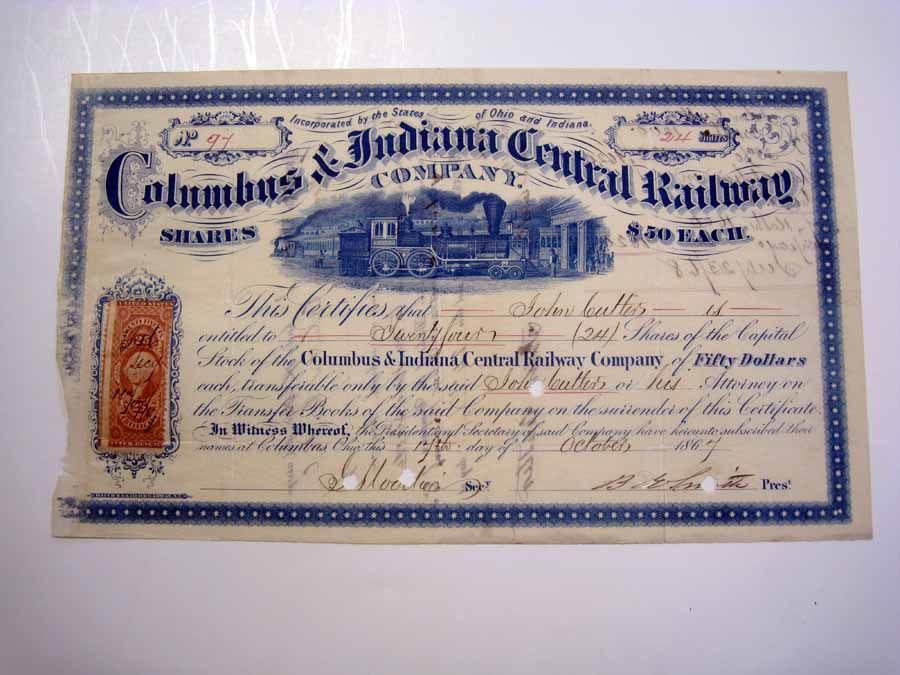 Incorporated by the States of Ohio and Indiana.
No 97
24 SHARES
Columbus & Indiana Central Railway
COMPANY.
SHARES $50 EACH.
This Certifies that John Cutter is
entitled to Twenty four (24) Shares of the Capital
Stock of the Columbus & Indiana Central Railway Company of Fifty Dollars
each, transferable only by the said John Cutter or his Attorney on
the Transfer Books of the said Company on the surrender of this Certificate.
In Witness Whereof, the President and Secretary of said Company have hereunto subscribed their
names at Columbus Ohio, this 17th day of October 1867
Secy
B E Smith Prest
UNITED STATES
INTER. REVENUE
July 23/68